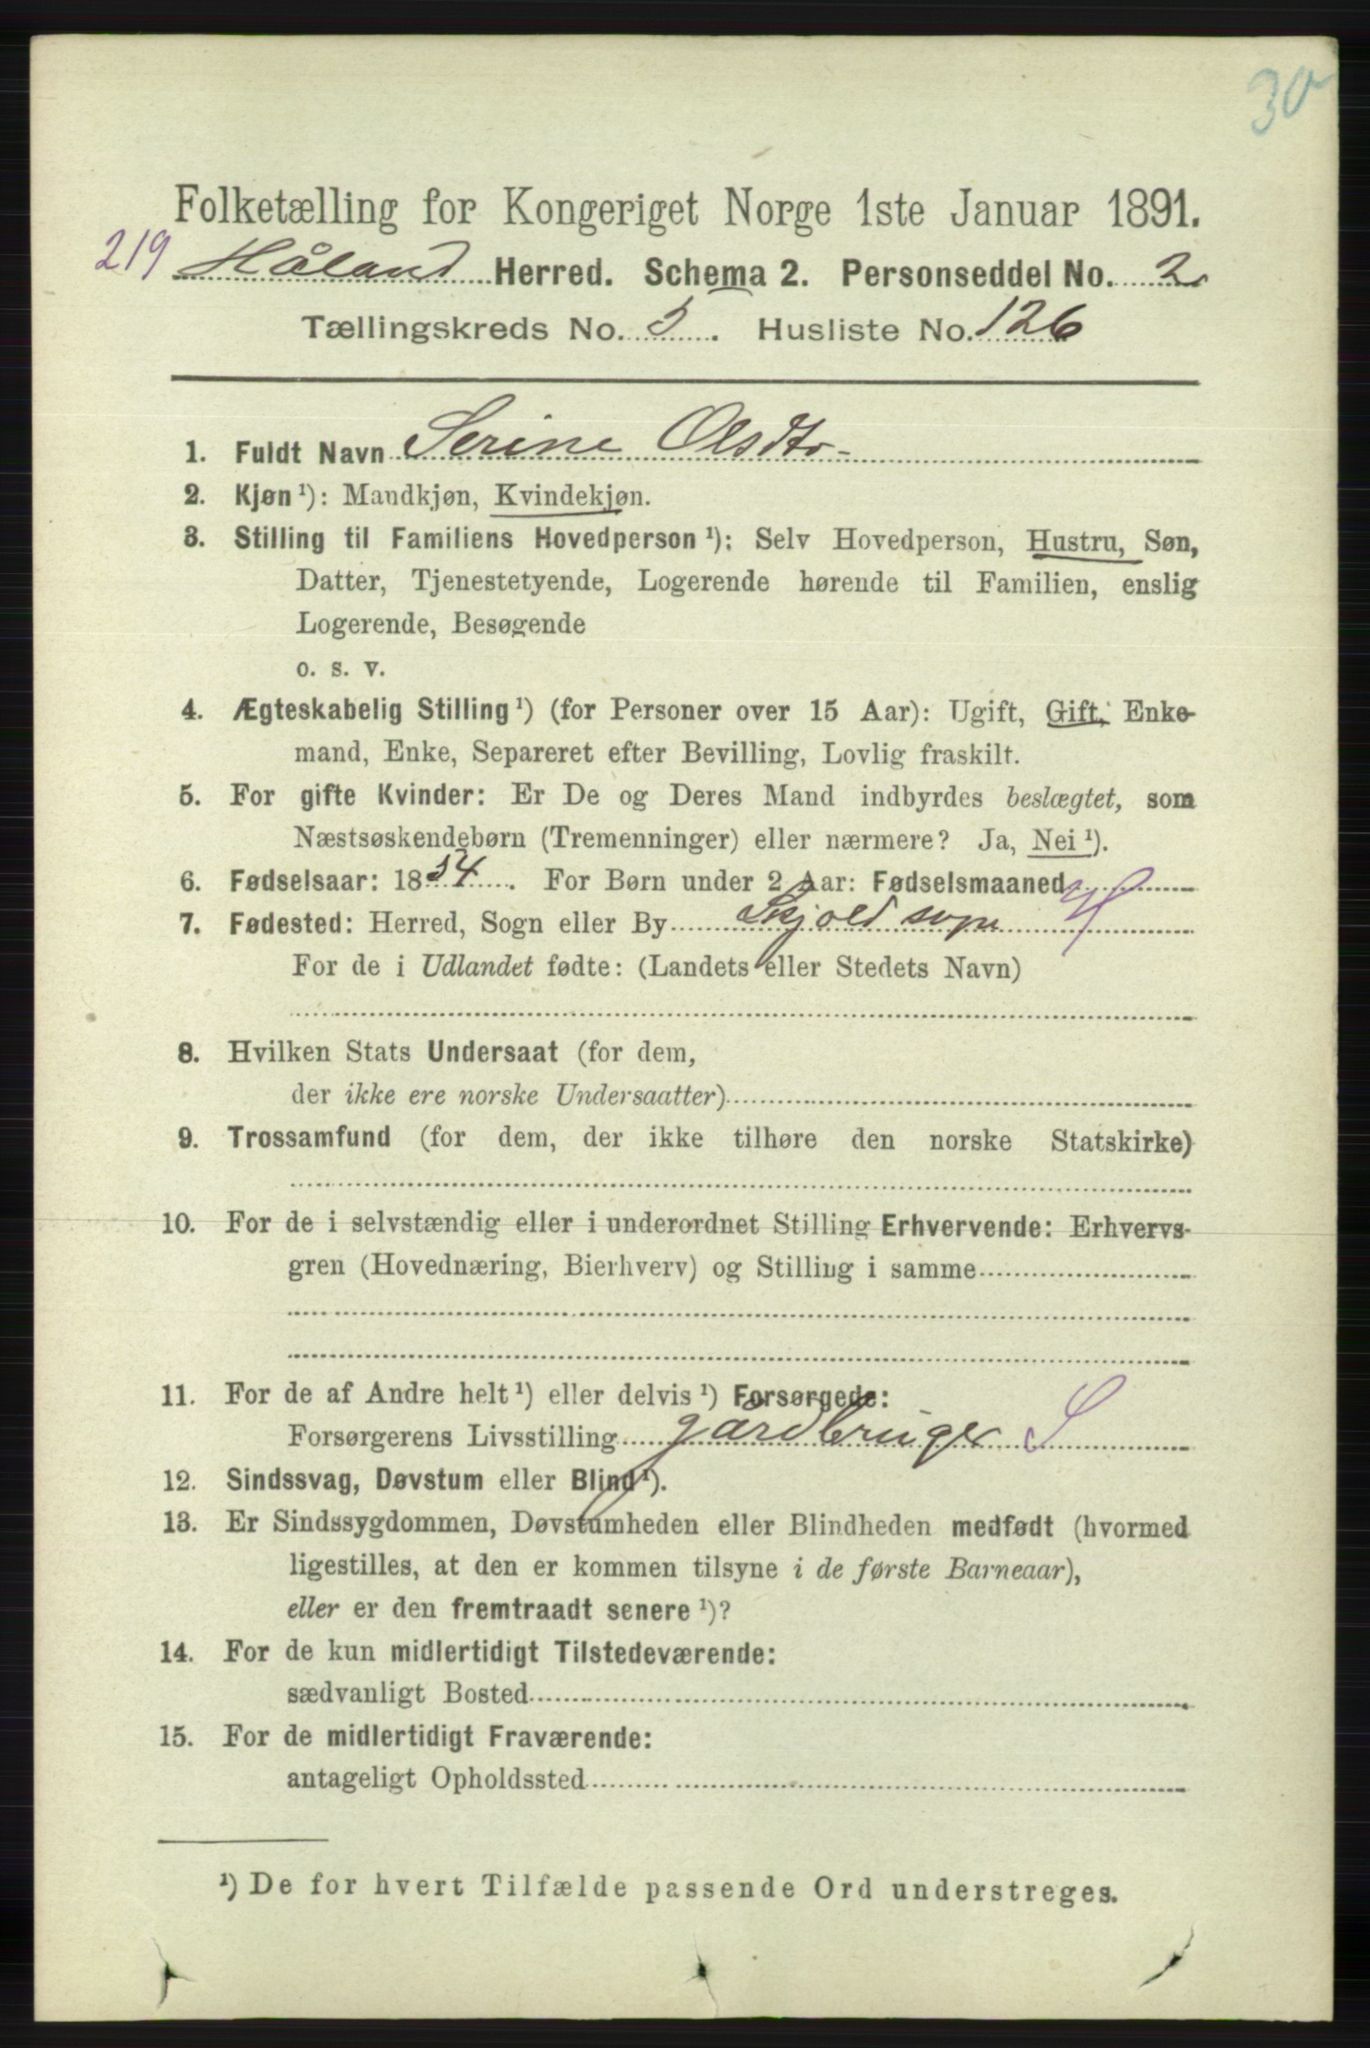 30
Folketælling for Kongeriget Norge 1ste Januar 1891.
219 Håland Herred. Schema 2. Personseddel No. 2
Tællingskreds No. 5. Husliste No. 126
1. Fuldt Navn Serine Olsdtr
2. Kjøn ¹): Mandkjøn, Kvindekjøn.
3. Stilling til Familiens Hovedperson ¹): Selv Hovedperson, Hustru, Søn,
Datter, Tjenestetyende, Logerende hørende til Familien, enslig
Logerende, Besøgende
o. s. v.
4. Ægteskabelig Stilling ¹) (for Personer over 15 Aar): Ugift, Gift, Enke-
mand, Enke, Separeret efter Bevilling, Lovlig fraskilt.
5. For gifte Kvinder: Er De og Deres Mand indbyrdes beslægtet, som
Næstsøskendebørn (Tremenninger) eller nærmere? Ja, Nei ¹).
6. Fødselsaar: 1854. For Børn under 2 Aar: Fødselsmaaned
7. Fødested: Herred, Sogn eller By Skjold sogn
For de i Udlandet fødte: (Landets eller Stedets Navn)
8. Hvilken Stats Undersaat (for dem,
der ikke ere norske Undersaatter)
9. Trossamfund (for dem, der ikke tilhøre den norske Statskirke)
10. For de i selvstændig eller i underordnet Stilling Erhvervende: Erhvervs-
gren (Hovednæring, Bierhverv) og Stilling i samme
11. For de af Andre helt ¹) eller delvis ¹) Forsørgede:
Forsørgerens Livsstilling gårdbruger S
12. Sindssvag, Døvstum eller Blind ¹).
13. Er Sindssygdommen, Døvstumheden eller Blindheden medfødt (hvormed
ligestilles, at den er kommen tilsyne i de første Barneaar),
eller er den fremtraadt senere ¹)?
14. For de kun midlertidigt Tilstedeværende:
sædvanligt Bosted
15. For de midlertidigt Fraværende:
antageligt Opholdssted
¹) De for hvert Tilfælde passende Ord understreges.